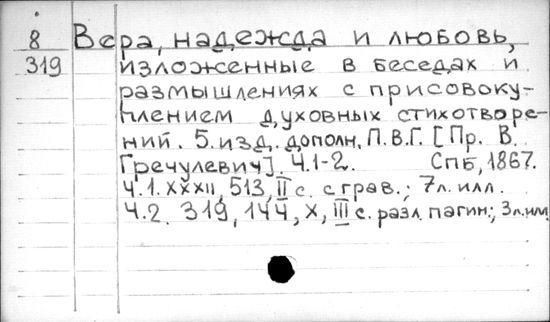 8 Вера, надежда и любовь,
319 изложенные в беседах и
размышлениях с присовоку-
плением духовных стихотворе-
ний. 5. изд. дополн. П.В.Г. [Пр. В.
Гречулевич]. Ч.1-2. Спб, 1867.
Ч.1. XXXII, 513, II с. с грав.; 7л. илл.
Ч.2. 319, 144, X, III с. разл. пагин.; 3л. илл.